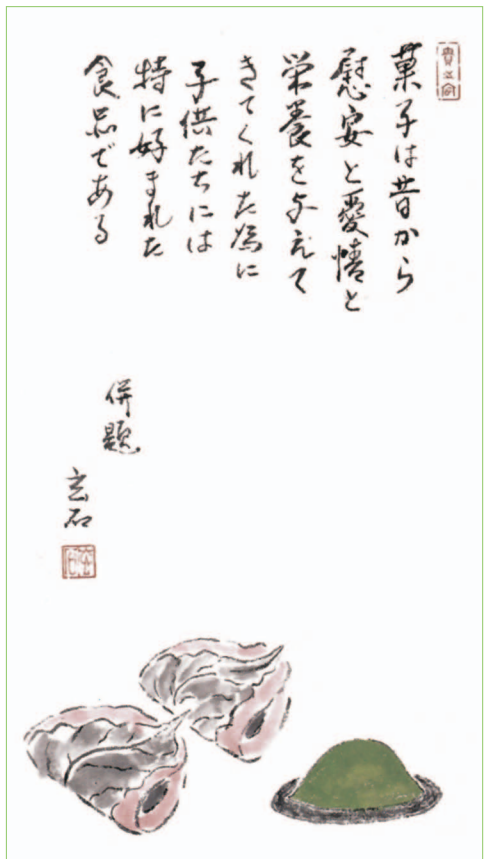 菓子は昔から
慰安と愛情と
栄養を与えて
きてくれた為に
子供たちには
特に好まれた
食品である
併題
玄石